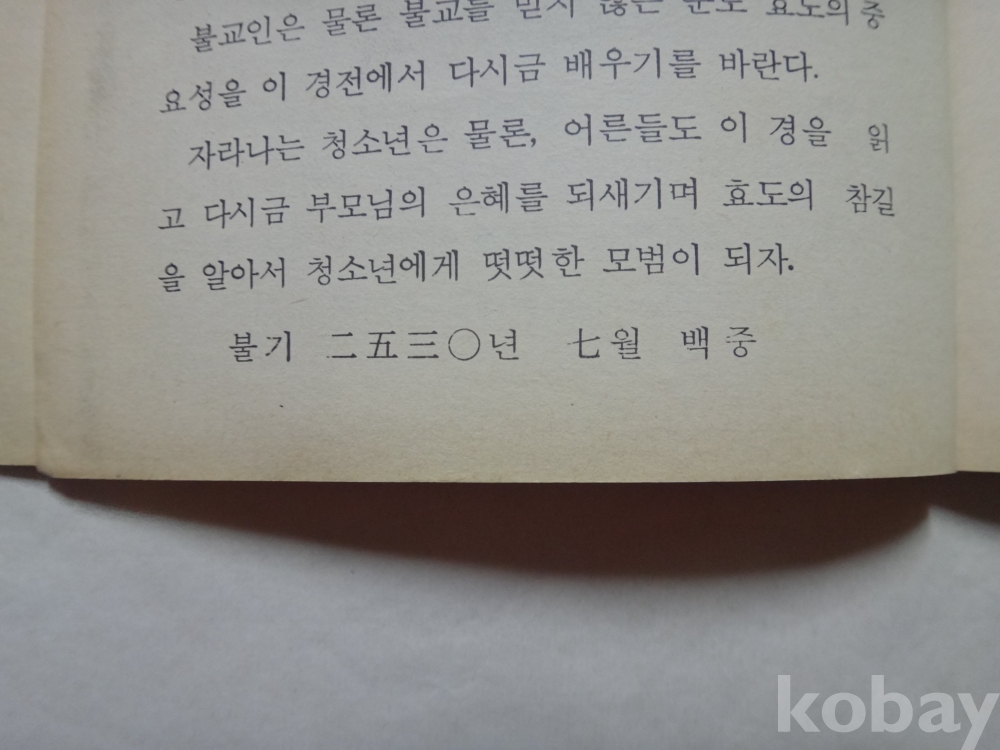 불교인은 물론 불교를 믿지 않는 분도 효도의 중
요성을 이 경전에서 다시금 배우기를 바란다.
자라나는 청소년은 물론, 어른들도 이 경을 읽
고 다시금 부모님의 은혜를 되새기며 효도의 참길
을 알아서 청소년에게 떳떳한 모범이 되자.
불기 二五三〇년 七월 백중
kobay